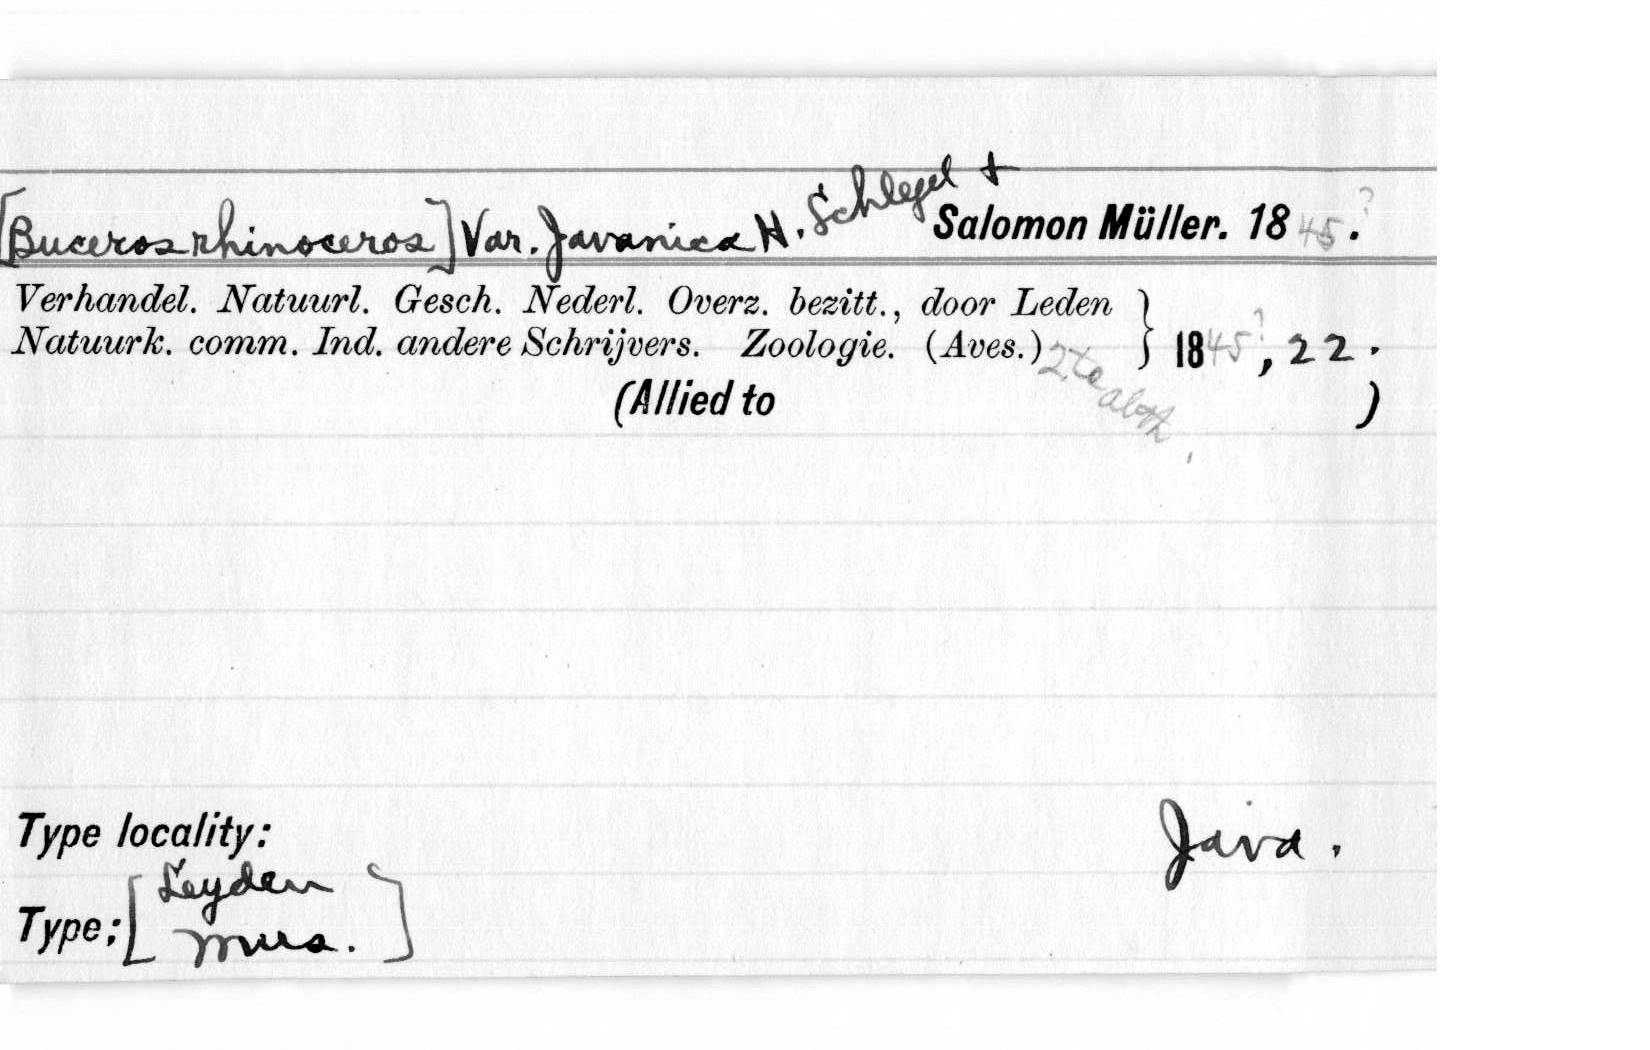 [Buceros rhinoceros] Var. Javanica H. Schlegel + Salomon Müller. 1845?.
Verhandel. Natuurl. Gesch. Nederl. Overz. bezitt., door Leden
Natuurk. comm. Ind. andere Schrijvers. Zoologie. (Aves.) } 1845?, 22.
2te abth.
(Allied to )
Type locality: Java.
Type: [Leyden
Mus.]